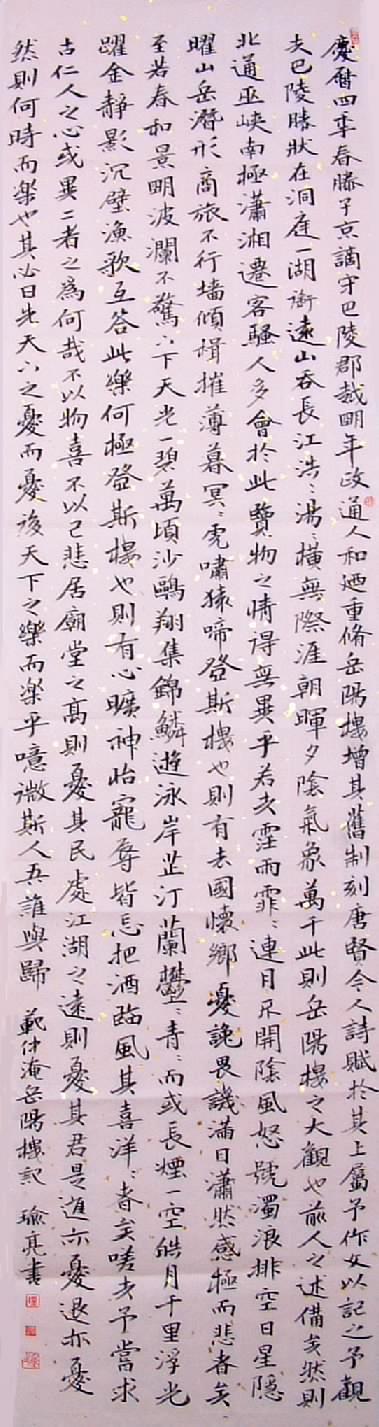 慶曆四年春滕子京謫守巴陵郡越明年政通人和廼重脩岳陽樓增其舊制刻唐賢今人詩賦於其上屬予作文以記之予觀
夫巴陵勝狀在洞庭一湖銜遠山吞長江浩〻湯〻橫無際涯朝暉夕陰氣象萬千此則岳陽樓之大觀也前人之述備矣然則
北通巫峽南極瀟湘遷客騷人多會於此覽物之情得無異乎若夫霪雨霏〻連月不開陰風怒號濁浪排空日星隱
曜山岳潛形商旅不行檣傾楫摧薄暮冥〻虎嘯猿啼登斯樓也則有去國懷鄉憂讒畏譏滿目瀟然感極而悲者矣
至若春和景明波瀾不驚上下天光一碧萬頃沙鷗翔集錦鱗遊泳岸芷汀蘭鬱〻青〻而或長煙一空皓月千里浮光
躍金靜影沉璧漁歌互答此樂何極登斯樓也則有心曠神怡寵辱皆忘把酒臨風其喜洋〻者矣嗟夫予嘗求
古仁人之心或異二者之為何哉不以物喜不以己悲居廟堂之高則憂其民處江湖之遠則憂其君是進亦憂退亦憂
然則何時而樂也其必曰先天下之憂而憂後天下之樂而樂乎噫微斯人吾誰與歸 範仲淹岳陽樓記 瑜亮書